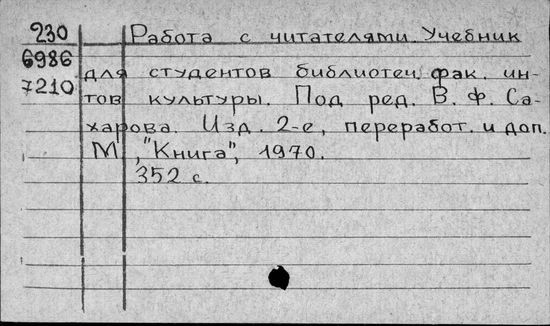 230 Работа с читателями. Учебник
6986
для студентов библиотеч. фак. ин-
7210
тов культуры. Под ред. В. Ф. Са-
харова. Изд. 2-е, переработ. и доп.
М., "Книга", 1970.
352 с.